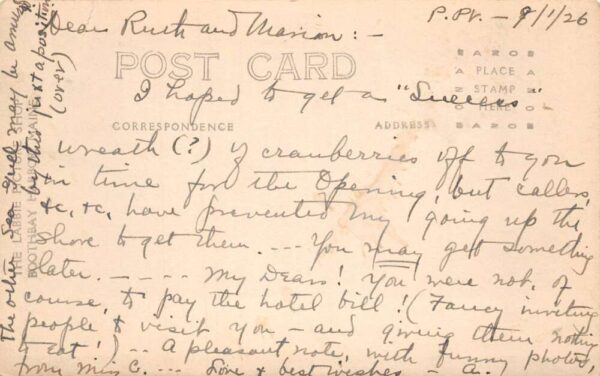 P.Pt. — 9/1/26
Dear Ruth and Marion: —
POST CARD
AZORE
A PLACE A
Z STAMP Z
O HERE O
AZORE
I hoped to get a "Success"
CORRESPONDENCE ADDRESS
wreath (?) of cranberries off to you
in time for the Opening, but callers,
&c, &c, have prevented my going up the
shore to get them. --- You may get something
later. - - - - My Dears! You were not, of
course, to pay the hotel bill! (Fancy inviting
people to visit you — and giving them nothing
to eat!) --- A pleasant note, with funny photos,
from Miss C. --- Love & best wishes — A.
The other Sea Gull may be amused
by this juxtaposition
(over)
THE SHOP
BOOTHBAY HARBOR, MAINE